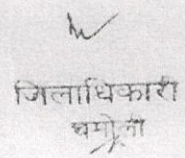 जिलाधिकारी
चमोली